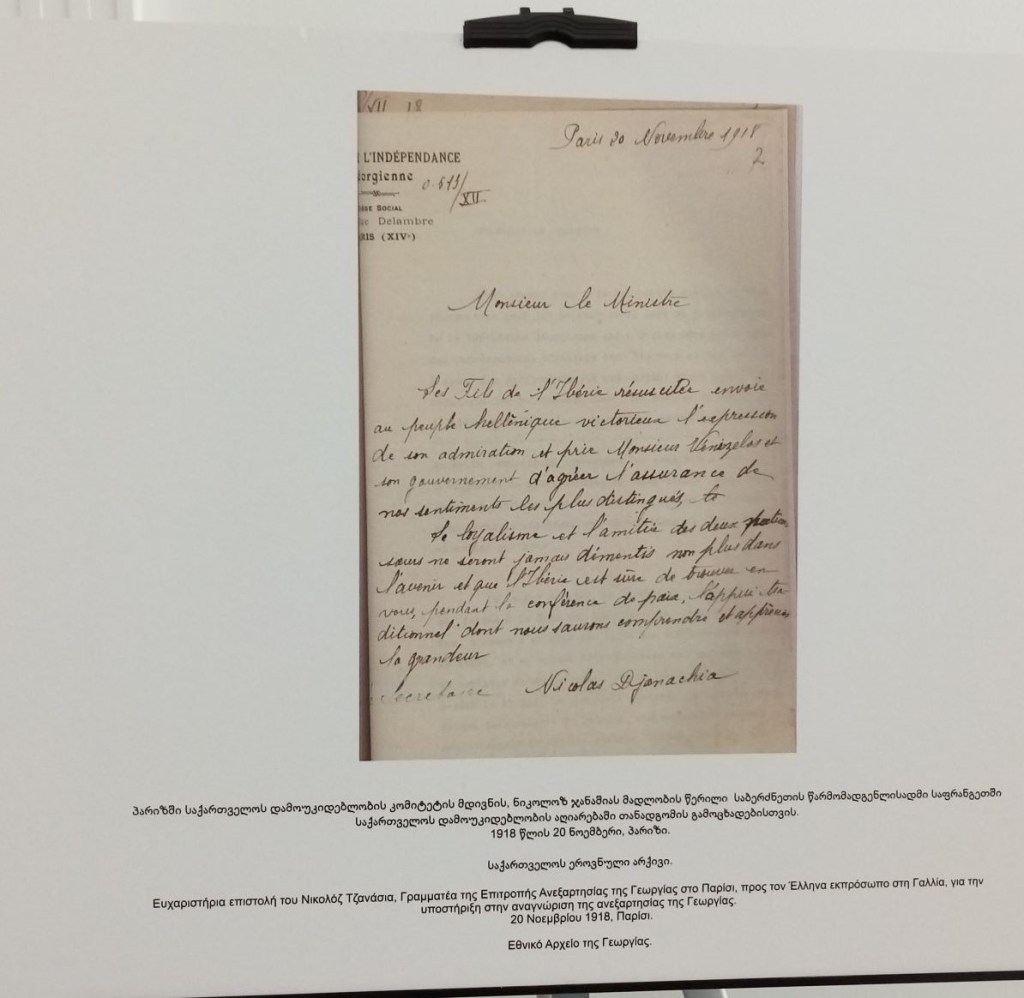 VII 18
Paris 20 Novembre 1918
2
L'INDÉPENDANCE
orgienne
0.513/XII
SOCIAL
Delambre
RIS (XIVe)
Monsieur le Ministre
Les Fils de l'Ibérie résuscitée envoie
au peuple hellènique victorieux l'expression
de son admiration et prie Monsieur Vénizelos et
son gouvernement d'agréer l'assurance de
nos sentiments les plus distingués,
Le loyalisme et l'amitié des deux
sœurs ne seront jamais démentis non plus dans
l'avenir et que l'Ibérie est sûre de trouver en
vous, pendant la conférence de paix, l'appui tra
ditionnel dont nous saurons comprendre et
la grandeur
Secretaire Nicolas Djanachia
პარიზში საქართველოს დამოუკიდებლობის კომიტეტის მდივნის, ნიკოლოზ ჯანაშიას მადლობის წერილი საბერძნეთის წარმომადგენლისადმი საფრანგეთში
საქართველოს დამოუკიდებლობის აღიარებაში თანადგომის გამოცხადებისთვის.
1918 წლის 20 ნოემბერი, პარიზი.
საქართველოს ეროვნული არქივი.
Ευχαριστήρια επιστολή του Νικολόζ Τζανάσια, Γραμματέα της Επιτροπής Ανεξαρτησίας της Γεωργίας στο Παρίσι, προς τον Έλληνα εκπρόσωπο στη Γαλλία, για την
υποστήριξη στην αναγνώριση της ανεξαρτησίας της Γεωργίας.
20 Νοεμβρίου 1918, Παρίσι.
Εθνικό Αρχείο της Γεωργίας.